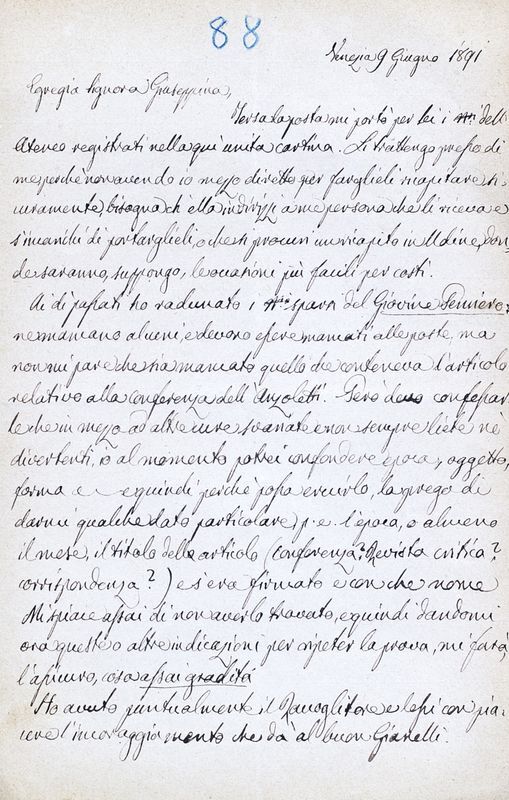 88
Venezia 9 Giugno 1891
Egregia Signora Giuseppina,
Jersa la posta mi portò per lei i nri dell'
Ateneo registrati nella qui unita cartina. Li trattengo presso di
me perchè non avendo io mezo diretto per farglieli ricapitare si-
curamente, bisogna ch'ella indirizzi a me persona che li riceva e
s'incarichi di portarglieli, o che si procuri un ricapito in Udine, don-
de saranno, suppongo, le occasioni più facili per costì.
Ai dì passati ho radunato i nri sparsi del Giovine Pensiero:
ne mancano alcuni, e devono essere mancati alle poste, ma
non mi pare che sia mancato quello che conteneva l'articolo
relativo alla conferenza dell'Anzoletti. Però devo confessar
le che in mezo ad altre cure svariate e non sempre liete nè
divertenti, io al momento potrei confondere epoca, oggetto,
forma e equindi perchè possa ercuirlo, la prego di
darmi qualche dato particolare, p. e. l'epoca, o almeno
il mese, il titolo dell'articolo (conferenza? Rivista critica?
corrispondenza?) e s'era firmato e con che nome
Mi spiace assai di non averlo trovato, e quindi dandomi
ora queste o altre indicazioni per ripeter la prova, mi farà,
l'assicuro, cosa assai gradita
Ho avuto puntualmente il Raccoglitore e lessi con pia-
cere l'incoraggiamento che dà al buon Gianelli.